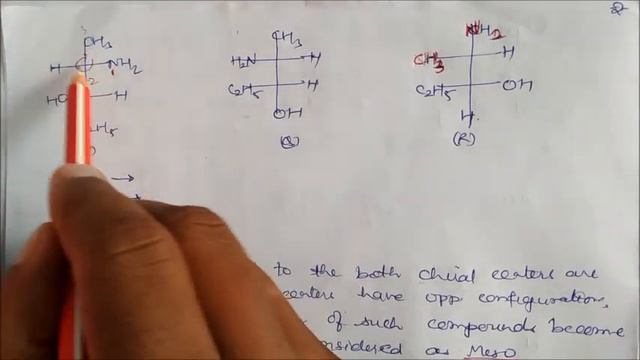 2
CH3 CH3 NH2
H NH2 H2N H CH3 H
2
HO H C2H5 H C2H5 OH
H5 OH H
(S) (R)
to the both chiral centers are
centers have opp configuration,
of such compounds become
considered as Meso